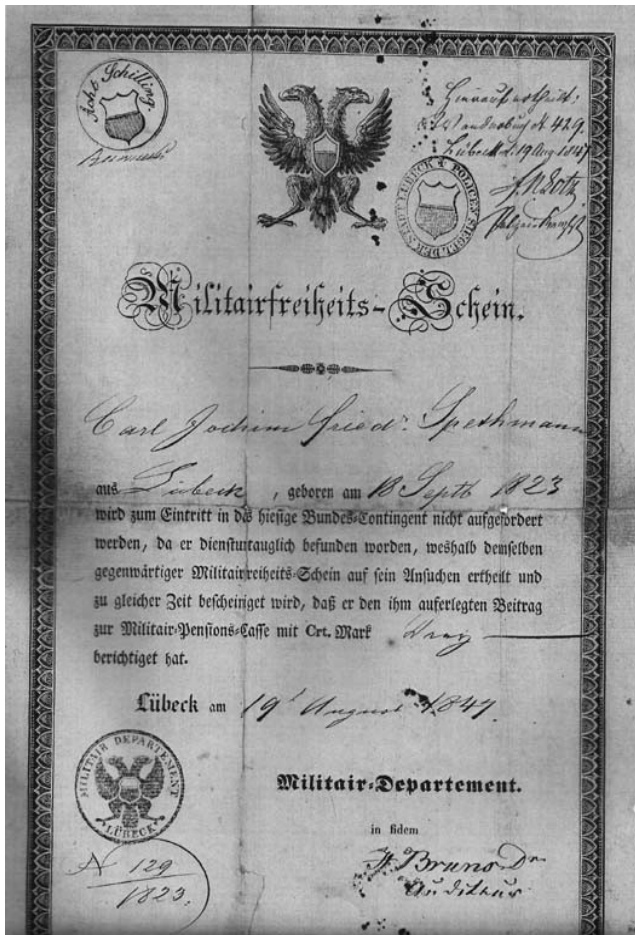 Acht Schilling.
Hierauf ertheilt:
Wanderbuch № 429.
Lübeck d. 19 Aug 1847
POLICEI SIEGEL DER STADT LÜBECK
Militairfreiheits-Schein.
Carl Jochim Friedr. Spethmann
aus Lübeck, geboren am 18 Septb 1823
wird zum Eintritt in das hiesige Bundes-Contingent nicht aufgefordert
werden, da er dienstuntauglich befunden worden, weshalb demselben
gegenwärtiger Militairfreiheits-Schein auf sein Ansuchen ertheilt und
zu gleicher Zeit bescheiniget wird, daß er den ihm auferlegten Beitrag
zur Militair-Pensions-Casse mit Crt. Mark Drey
berichtiget hat.
Lübeck am 19t August 1847.
MILITAIR DEPARTEMENT
LÜBECK
Militair-Departement.
in fidem
Bruns Dr
Auditeur
N 129
1823.